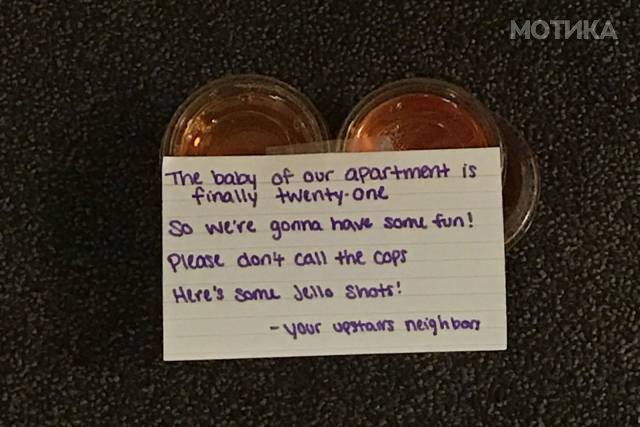 МОТИКА
The baby of our apartment is
finally twenty-one
So we're gonna have some fun!
Please don't call the cops
Here's some Jello Shots!
- your upstairs neighbors